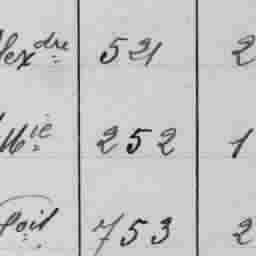 lex dre 521 2
Mie 252 1
Poil 753 2